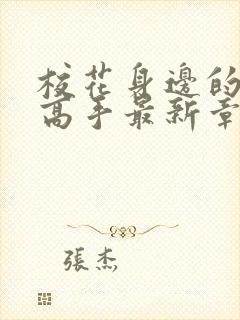 校花身邊的
高手最新章
張杰